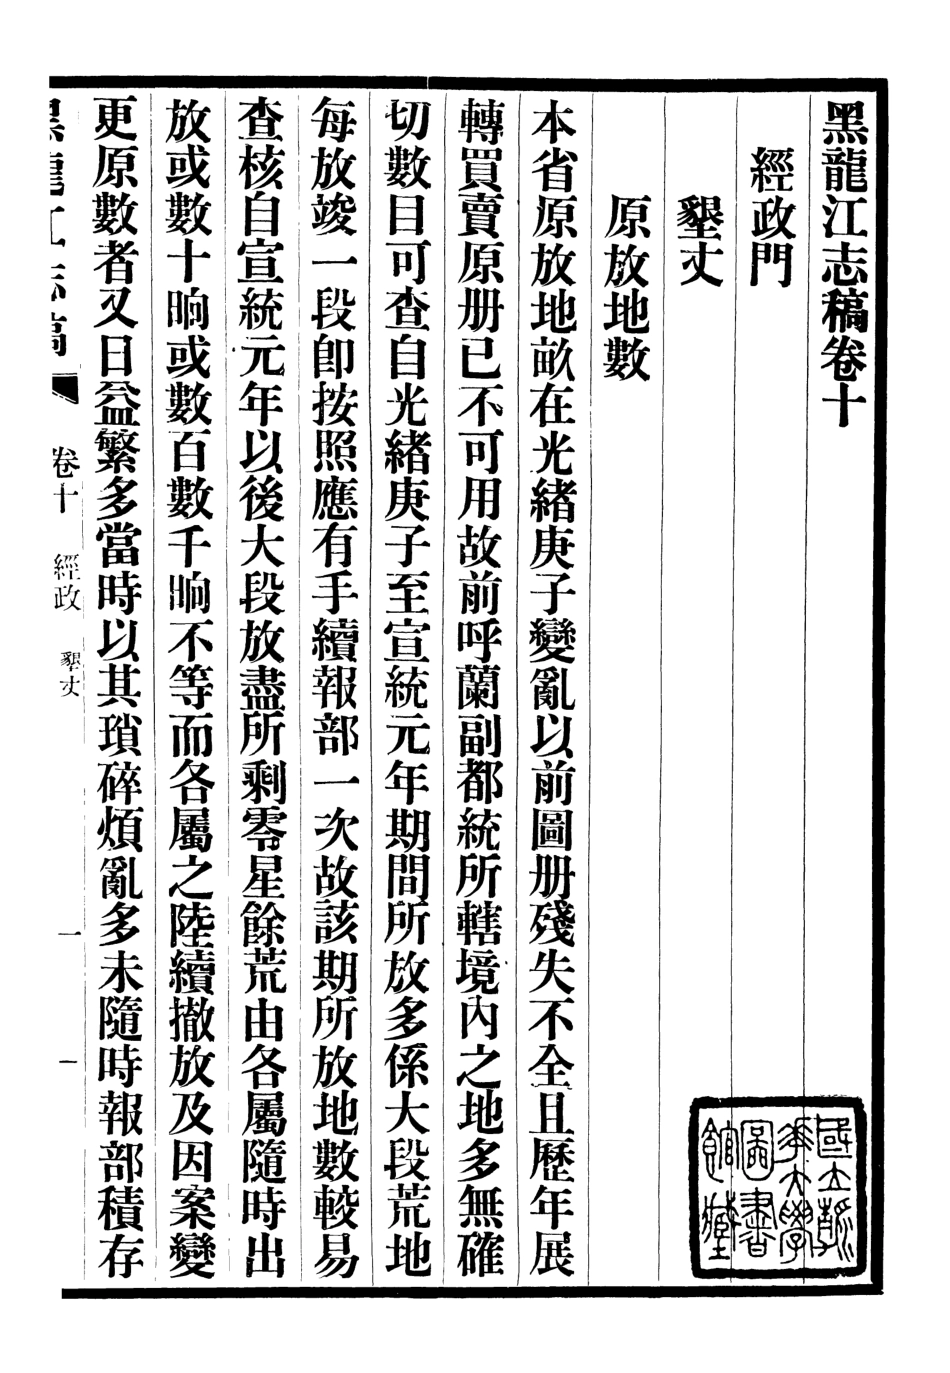 黑龍江志稿卷十
經政門
墾丈
原放地數
本省原放地畝在光緒庚子變亂以前圖册殘失不全且歷年展
轉買賣原册已不可用故前呼蘭副都統所轄境內之地多無確
切數目可查自光緒庚子至宣統元年期間所放多係大段荒地
每放竣一段卽按照應有手續報部一次故該期所放地數較易
查核自宣統元年以後大段放盡所剩零星餘荒由各屬隨時出
放或數十晌或數百數千晌不等而各屬之陸續撤放及因案變
更原數者又日益繁多當時以其瑣碎煩亂多未隨時報部積存
黑龍江志稿 卷十 經政 墾丈 一 一
國立清華大學圖書館藏